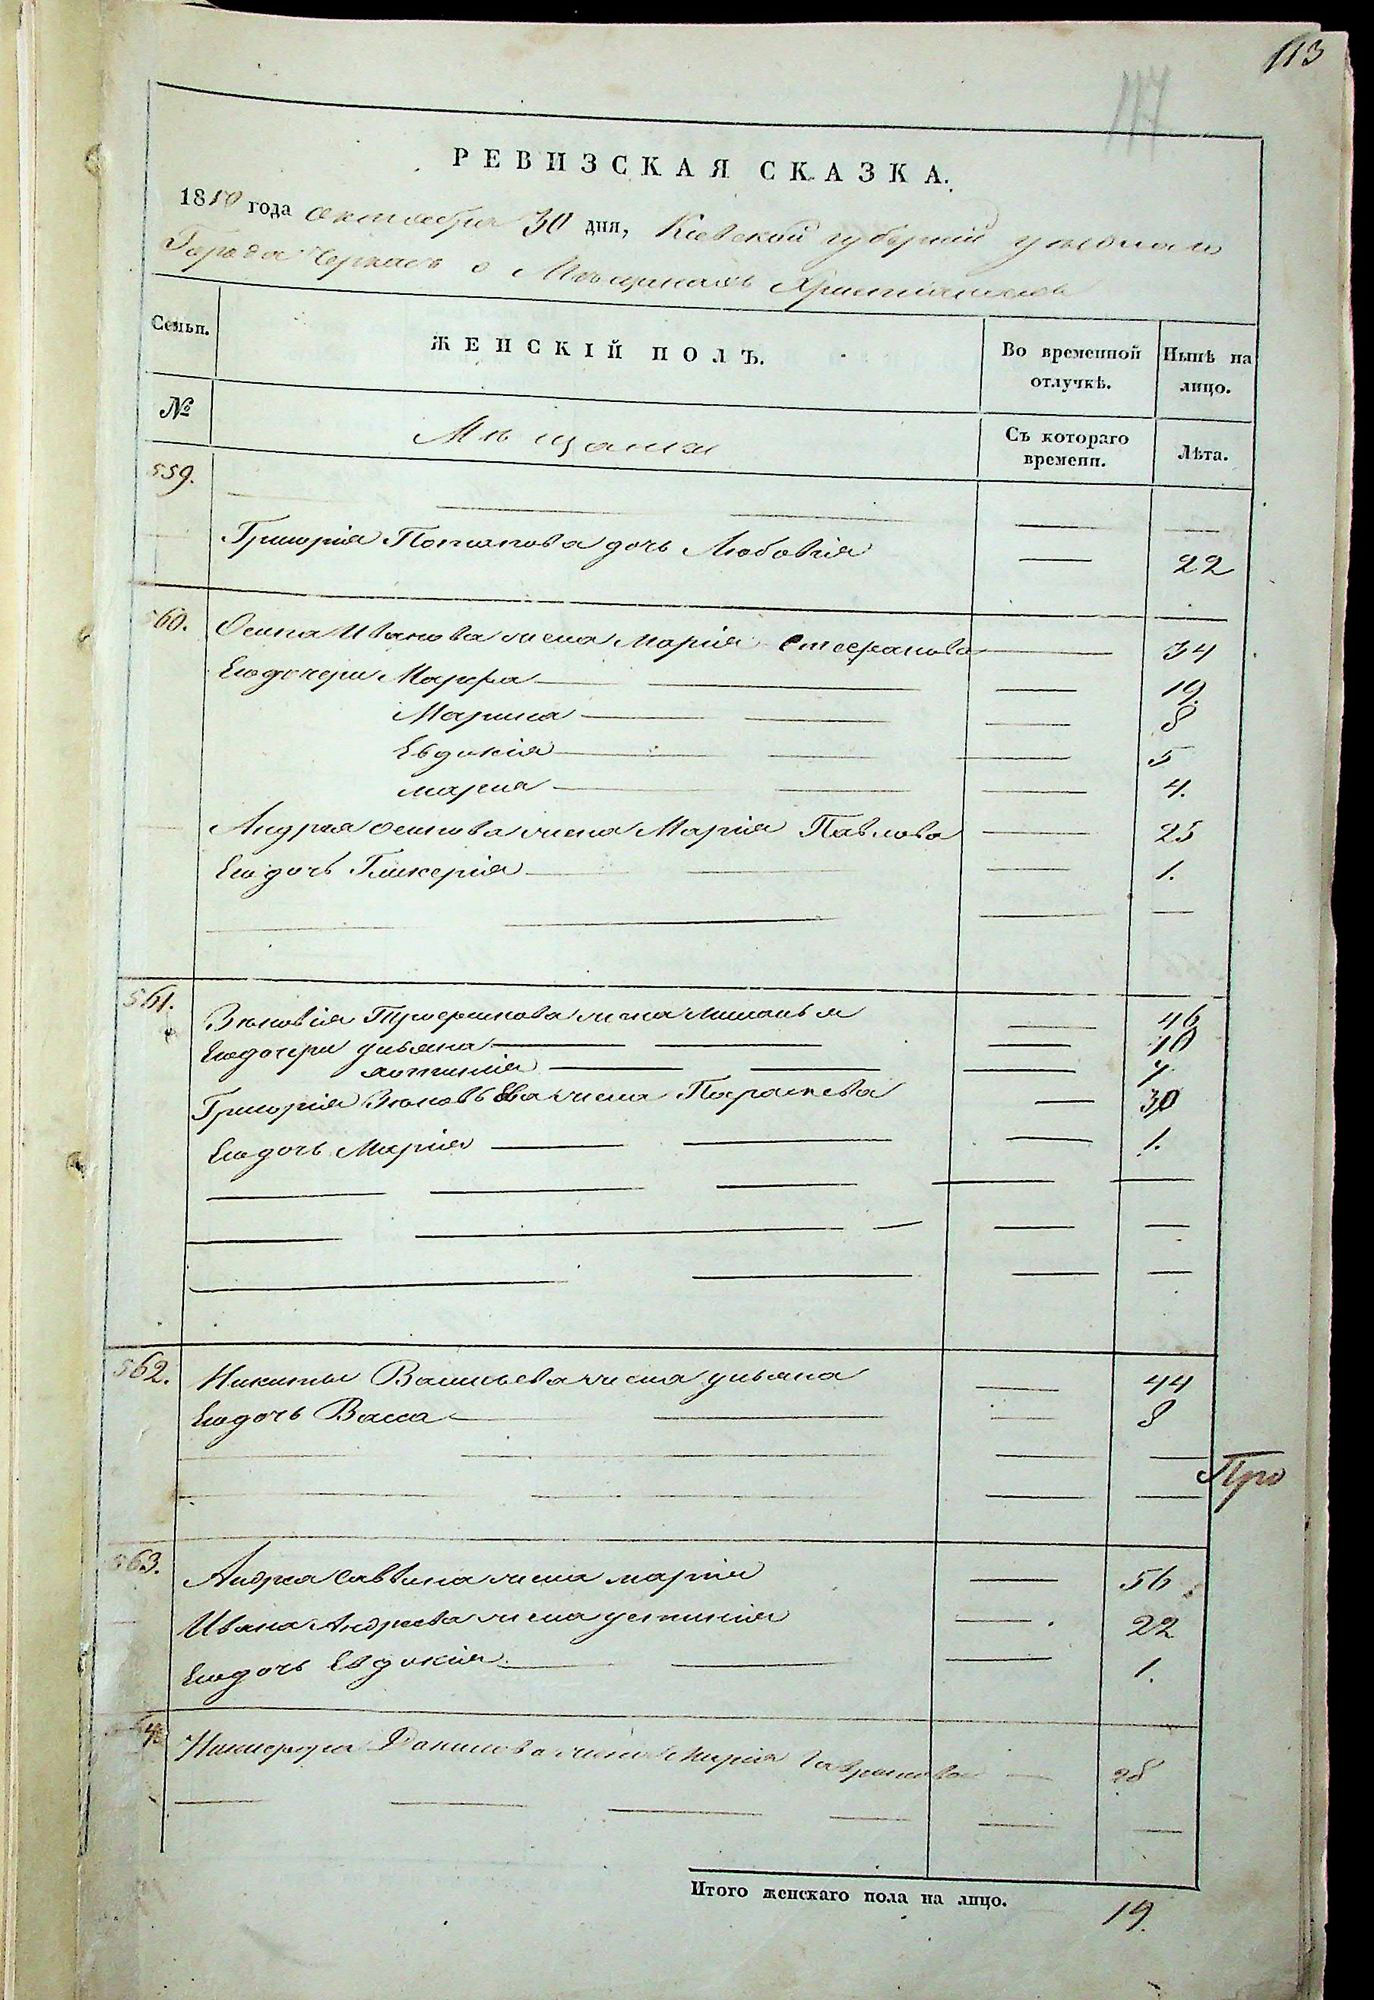 113
117
РЕВИЗСКАЯ СКАЗКА.
1850 года октября 30 дня, Кіевской губерніи уезднаго
Города Черкасъ о Мѣщанахъ Христіанахъ
Семьи. ЖЕНСКІЙ ПОЛЪ. Во временной отлучкѣ. Нынѣ на лицо.
№ Мѣщанки Съ котораго времени. Лѣта.
559.
Григорія Потапова дочь Любовія — 22
560. Осипа Иванова жена Марія Стефанова — 34
Его дочери Марфа — 19.
Марина — 8
Евдокія — 5
Марія — 4.
Андрея Осипова жена Марія Павлова — 25
Его дочь Гликерія — 1.
561. Зѣновія Трофимова жена Меланья — 46
Его дочери Ульяна — 10
Устинія — 7
Григорія Зѣновьева жена Параскева — 30
Его дочь Марія — 1.
562. Никиты Васильева жена Ульяна — 44
Его дочь Васса — 8
Про
563. Андрея Саввина жена Марія — 56
Ивана Андреева жена Устинія — 22
Его дочь Евдокія — 1.
564. Никифора Данилова жена Марія Гаврилова — 28
Итого женскаго пола на лицо. 19.